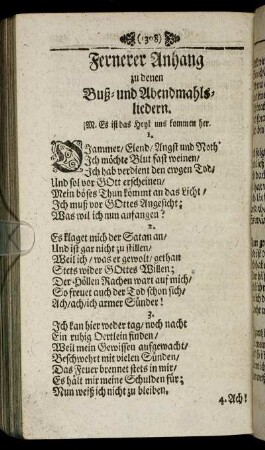 (1308)
Fernerer Anhang
zu denen
Buß- und Abendmahls-
liedern.
[M. Es ist das Heyl uns kommen her.
1.
O Jammer/ Elend/ Angst und Noth/
Ich möchte Blut fast weinen/
Ich hab verdient den ewgen Tod/
Und sol vor GOtt erscheinen/
Mein böses Thun kömmt an das Licht/
Ich muß vor GOttes Angesicht;
Was wil ich nun anfangen?
2.
Es klaget mich der Satan an/
Und ist gar nicht zu stillen/
Weil ich/ was er gewolt/ gethan
Stets wider GOttes Willen;
Der Höllen Rachen wart auf mich/
So freuet auch der Tod schon sich/
Ach/ ach/ ich armer Sünder!
3.
Ich kan hier weder tag/ noch nacht
Ein ruhig Oertlein finden/
Weil mein Gewissen aufgewacht/
Beschwehrt mit vielen Sünden/
Das Feuer brennet stets in mir/
Es hält mir meine Schulden für;
Nun weiß ich nicht zu bleiben.
4. Ach!